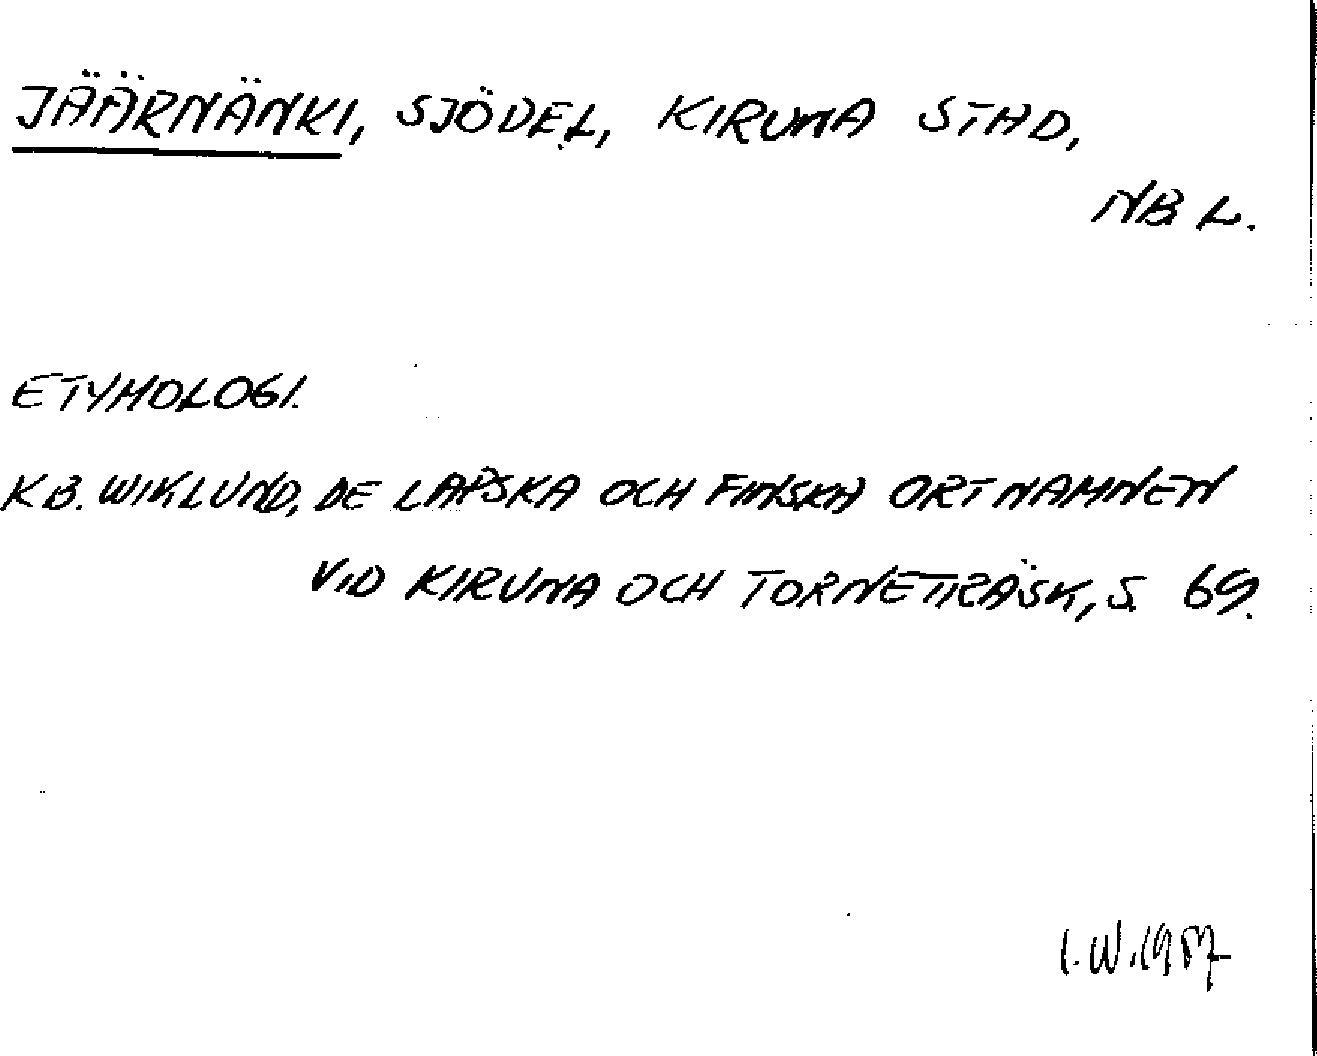 JÄÄRNÄNKI, SJÖDEL, KIRUNA STAD,
NB L.
ETYMOLOGI.
K B. WIKLUND, DE LAPSKA OCH FINSKA ORTNAMNEN
VID KIRUNA OCH TORNETRÄSK, S. 69.
I. W. 1987